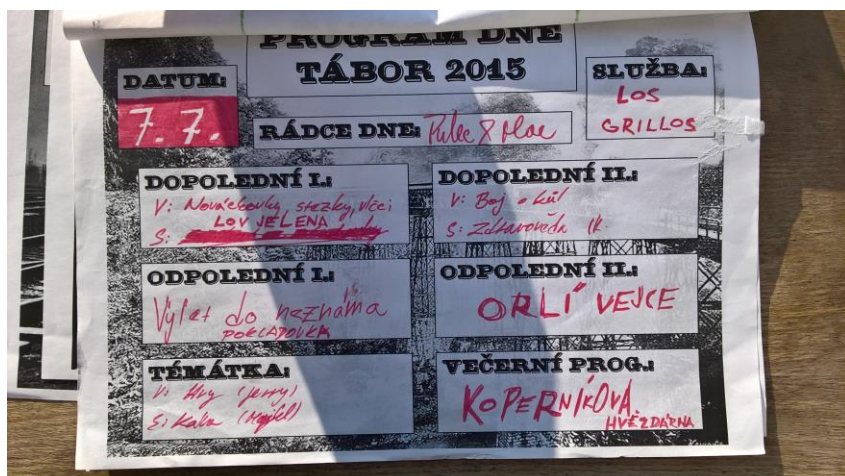 PROGRAM DNE
TÁBOR 2015
DATUM:
7. 7.
SLUŽBA:
LOS
GRILLOS
RÁDCE DNE:
DOPOLEDNÍ I.:
V: Nováčkovky, stezky, vlčci
LOV JELENA
S:
DOPOLEDNÍ II.:
V: Boj o kůl
S: Zdravověda
ODPOLEDNÍ I.:
Výlet do neznáma
POKLADOVKA
ODPOLEDNÍ II.:
ORLÍ VEJCE
TÉMÁTKA:
V: Hry (Jerry)
S: Kala
VEČERNÍ PROG.:
KOPERNÍKOVA
HVĚZDÁRNA